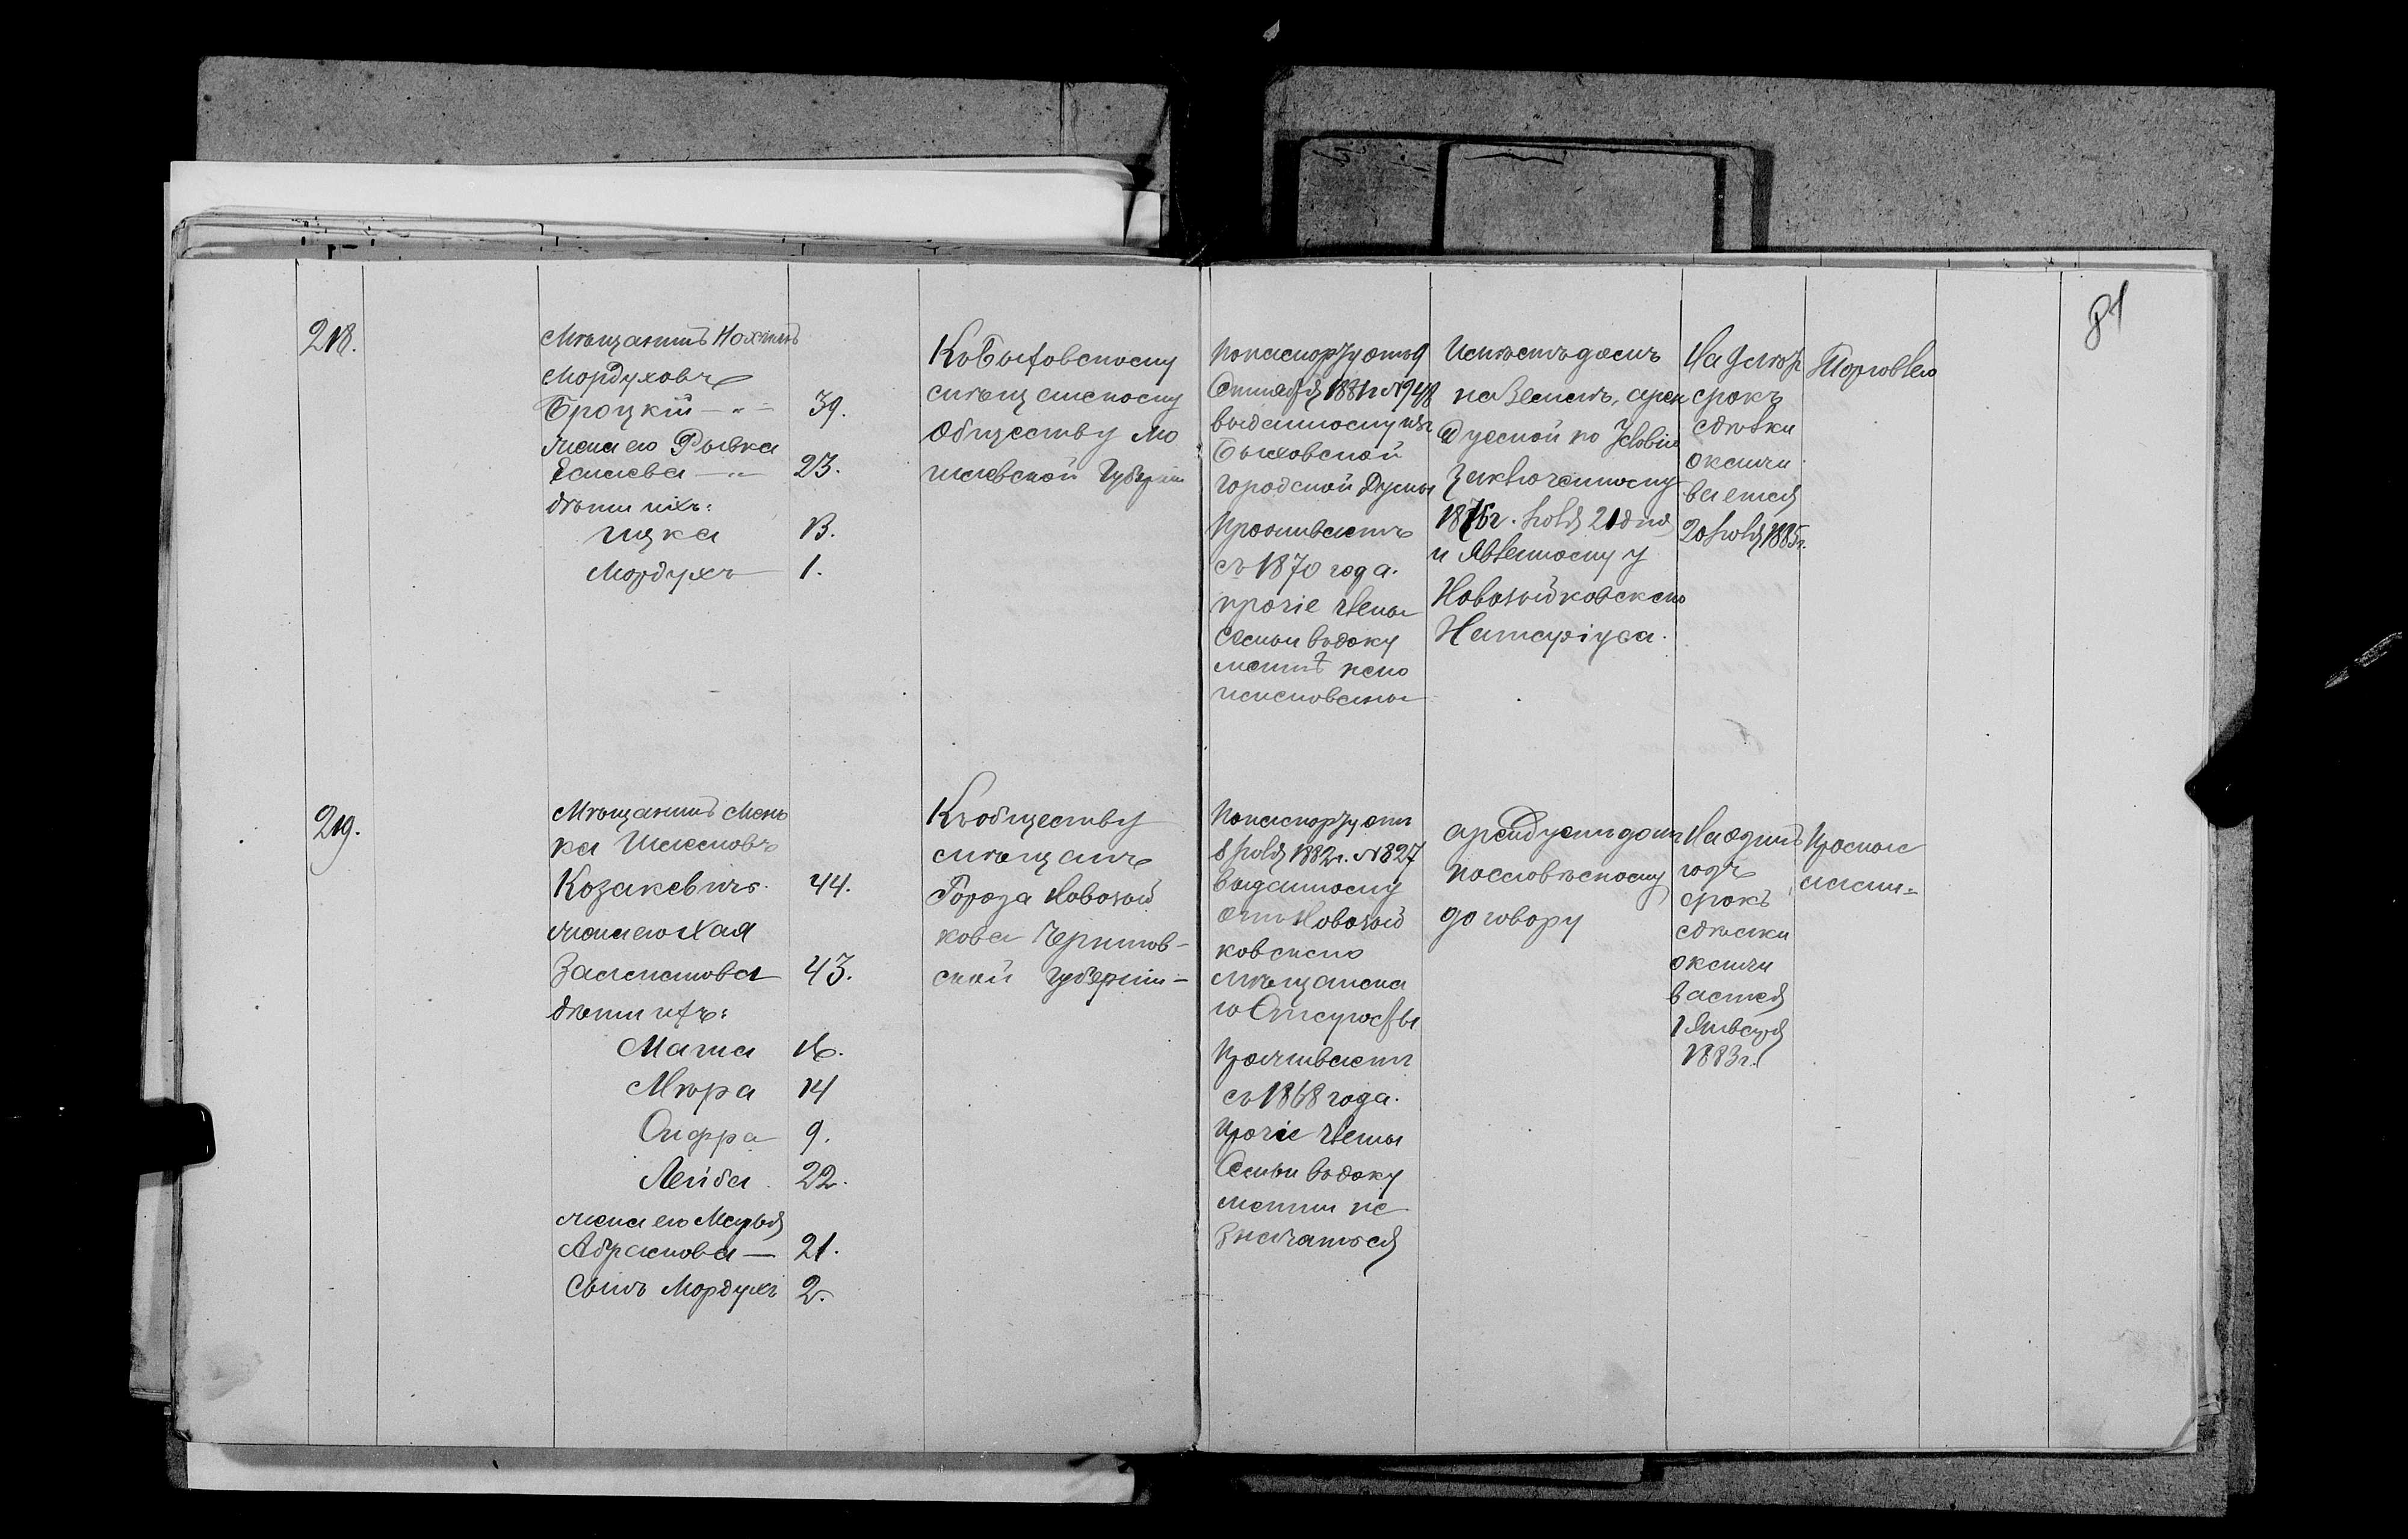 81
218.
Мѣщанинъ Нохимъ
Мордуховъ
Броцкій — " — 39.
жена его Рывка
— " — 23.
дѣти ихъ:
13.
Мордухъ 1.
Къ Быховскому
мѣщанскому
Обществу Мо
гилевской Губерніи
По паспорту отъ 9
1881 г. № 948
выданному изъ
Быховской
городской Думы
Проживаетъ
съ 1870 года.
прочіе члены
Семьи въ доку
ментѣ не по
именованы
Имѣетъ домъ
на Землѣ, арен
дуемой по
заключенному
1876 г. Іюля 21 дня
и явленному у
Новозыбковскаго
Натаріуса.
На 9 лѣтъ
срокъ
сдѣлки
оканчи
вается
20 Іюля 1885 г.
Торговлею
219.
Мѣщанинъ Мень
ка
Козакевичъ. 44.
жена его Хая
Залманова 43.
дѣти ихъ:
Маша 16.
Мѣра 14
Сифра 9.
Лейба 22.
жена его Марья
Абрамова — 21.
Сынъ Мордухъ 2.
Къ обществу
мѣщанъ
Города Новозыб
кова Чернигов-
ской Губерніи —
По паспорту отъ
8 Іюля 1882 г. № 827
выданному
отъ Новозыб
ковскаго
мѣщанска
го Старосты
Проживаетъ
съ 1868 года.
Прочіе члены
Семьи въ доку
ментѣ не
значатся
арендуетъ домъ
по словѣсному
договору
На одинъ
годъ
срокъ
сдѣлки
оканчи
вается
1 Января
1883 г.